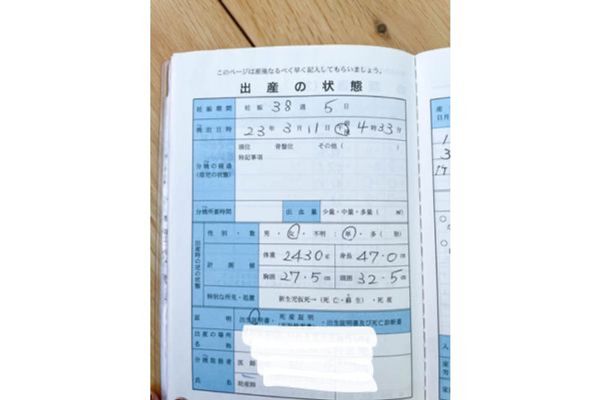 このページは産後なるべく早く記入してもらいましょう。
出産の状態
妊娠期間 妊娠 38 週 5 日
娩出日時 23 年 3 月 11 日 午 4 時 33 分
頭位 骨盤位 その他( )
特記事項
分娩の経過
(母児の状態)
分娩所要時間 出血量 少量・中量・多量( ml)
出産時の児の状態
性別・数 男・女・不明 単・多( 胎)
計測値
体重 2430 g 身長 47.0 cm
胸囲 27.5 cm 頭囲 32.5 cm
特別な所見・処置 新生児仮死→(死亡・蘇生)・死産
証明 出生証明書・死産証明書
出生証明書及び死亡診断書
出産の場所
名称
分娩取扱者 医師
氏名 助産師